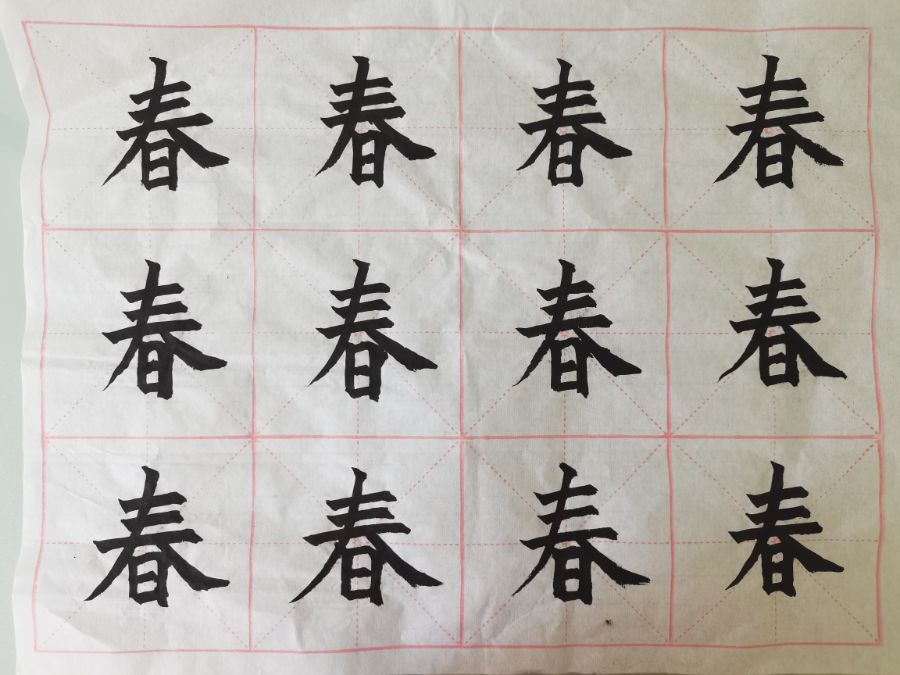 春春春春
春春春春
春春春春